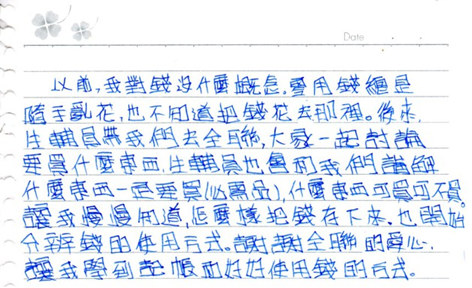 Date
以前,我對錢沒什麼概念,零用錢總是
隨手亂花,也不知道把錢花去那裡。後來,
生輔員帶我們去全聯,大家一起討論
要買什麼東西,生輔員也會和我們講解
什麼東西一定要買(必需品),什麼東西可買可不買。
讓我慢慢知道,怎麼樣把錢存下來,也開始
分辨錢的使用方式。謝謝全聯的愛心,
讓我學到記帳和好好使用錢的方式。